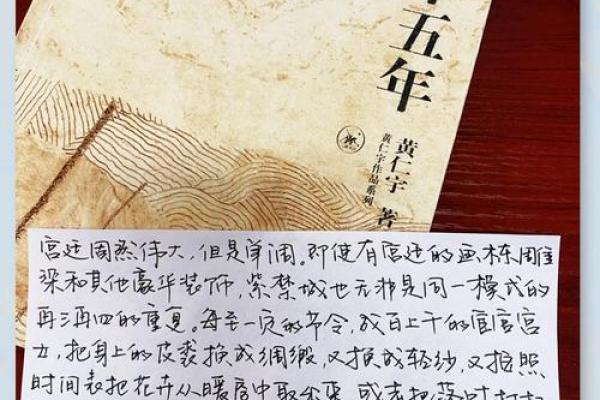 五年
黄仁宇 著
黄仁宇作品系列
宫廷固然伟大,但是单调。即使有宫廷的画栋雕
梁和其他豪华装饰,紫禁城也无非是同一模式的
再三再四的重复。每至一定的节令,成百上千的宦官宫
女,把身上的皮裘换成绸缎,又换成轻纱,又按照
时间表把花卉从暖房中取出来,或者把落叶打扫